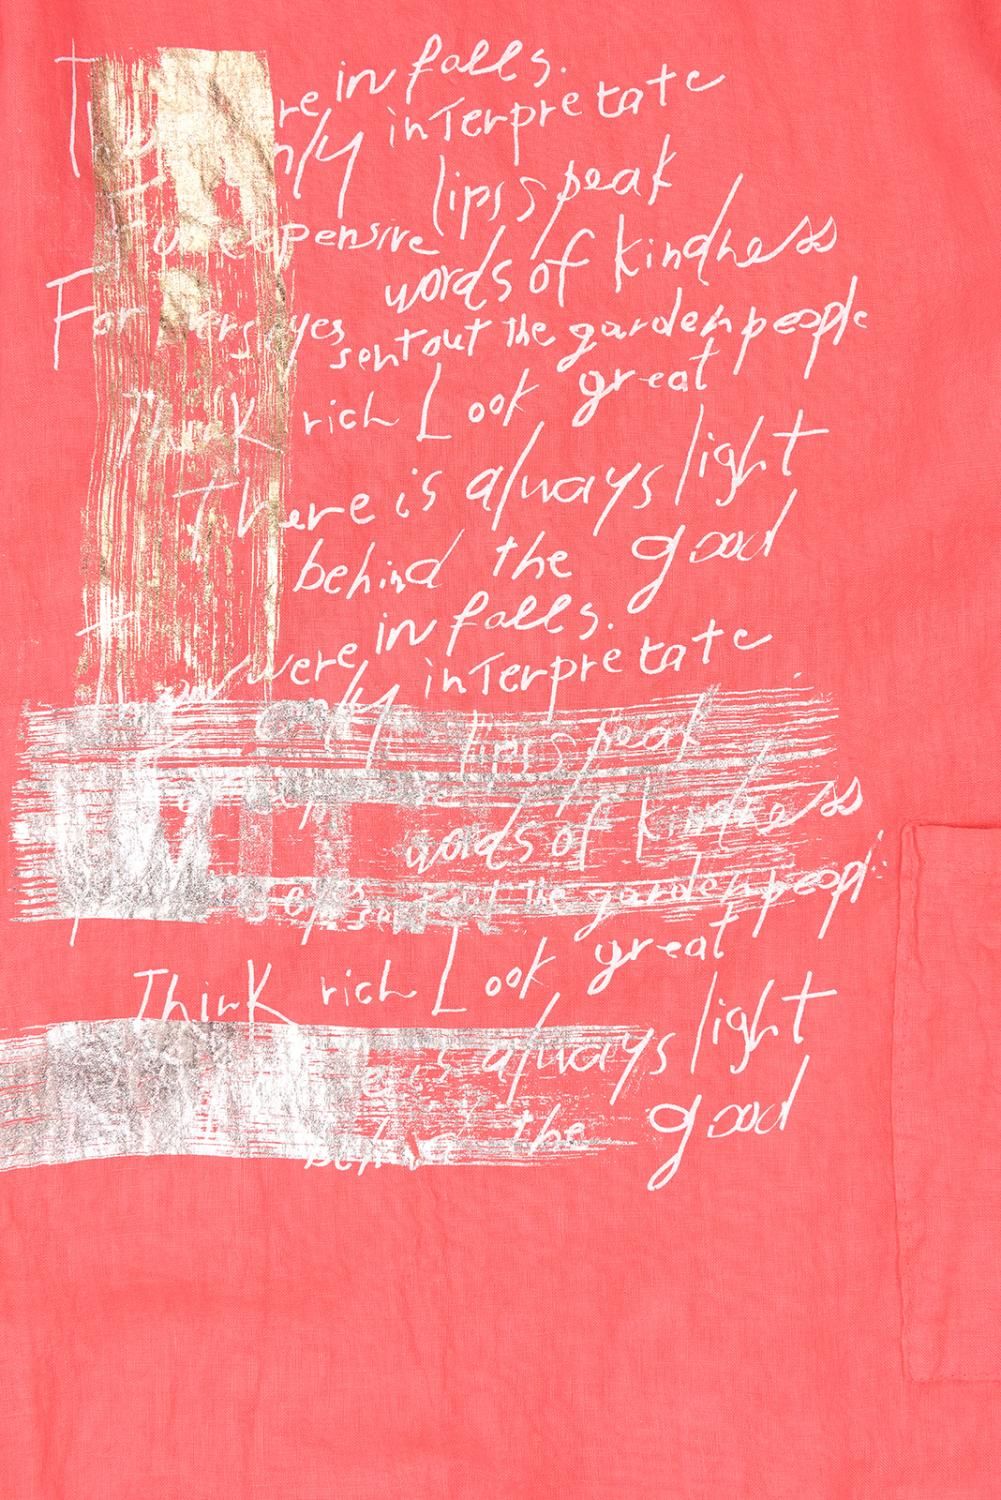 in falls.
interpretate
lips speak
expensive
words of kindness
For
sent out the garden people
Think rich Look great
There is always light
behind the good
were in falls.
only interpretate
lips speak
words of kindness
the garden people
Think rich Look great
is always light
behind the good